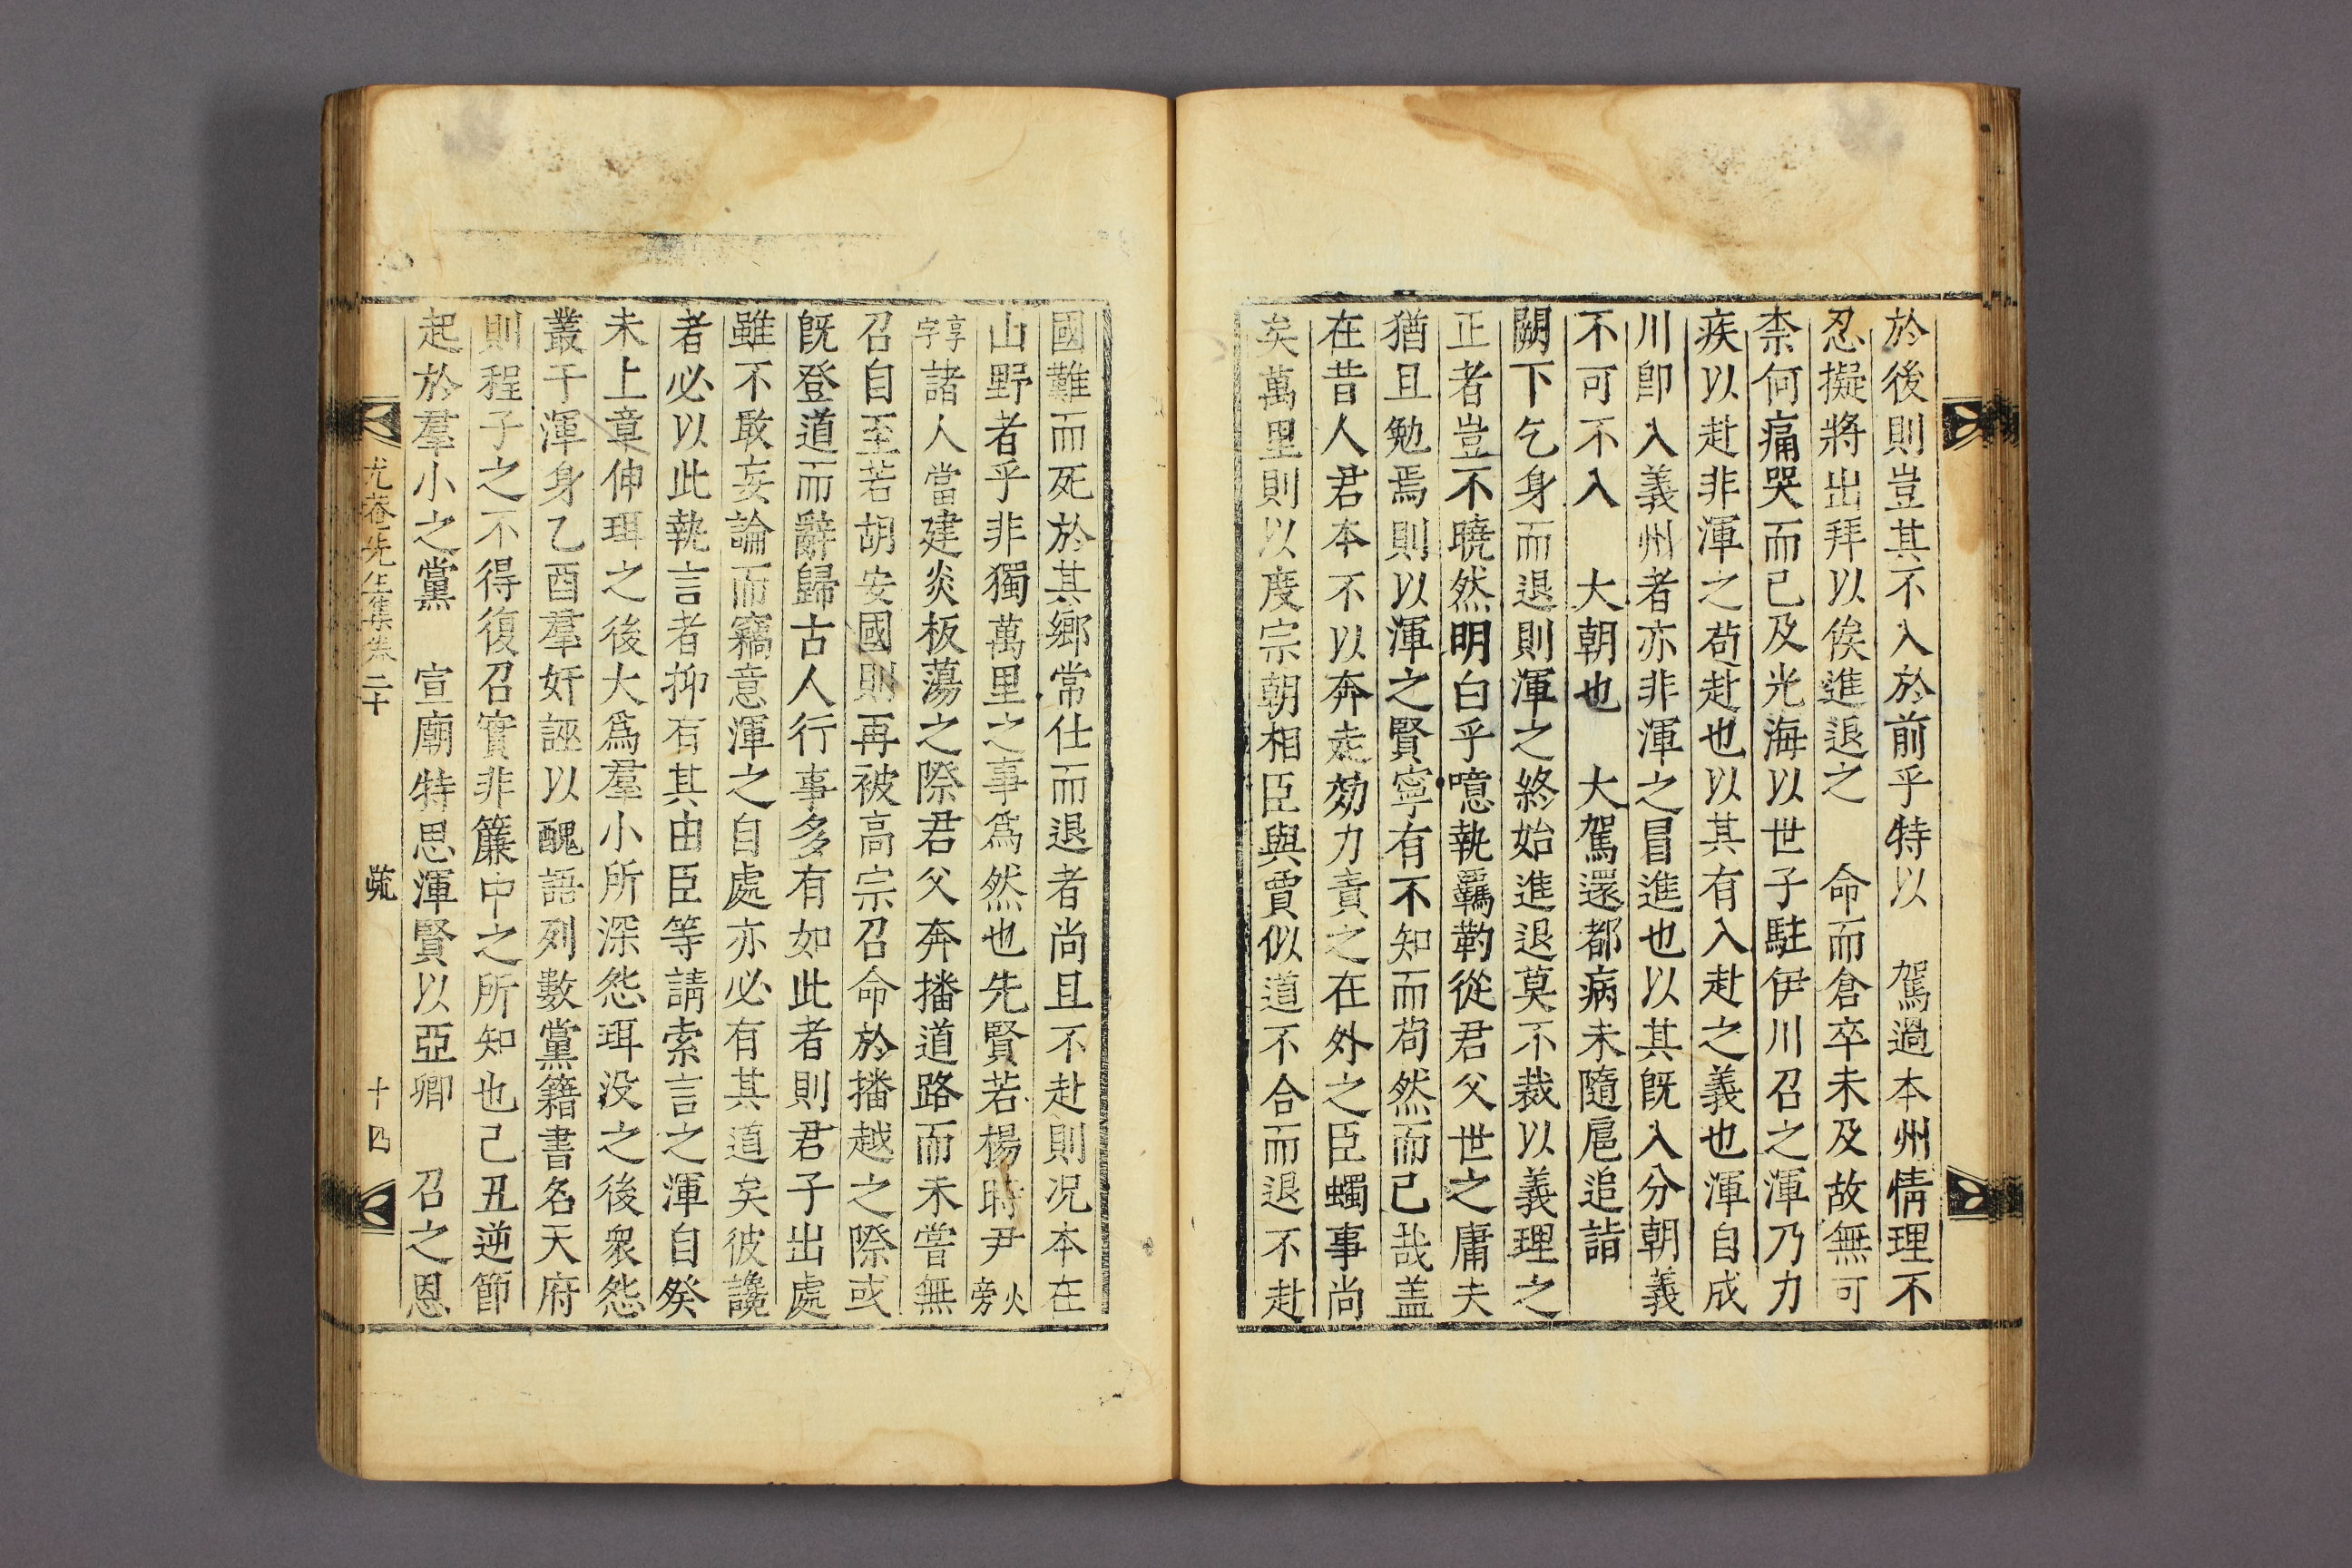 於後則豈其不入於前乎特以　駕過本州情理不
忍擬將出拜以俟進退之　命而倉卒未及故無可
柰何痛哭而已及光海以世子駐伊川召之渾乃力
疾以赴非渾之苟赴也以其有入赴之義也渾自成
川卽入義州者亦非渾之冒進也以其旣入分朝義
不可不入　大朝也　大駕還都病未隨扈追詣
闕下乞身而退則渾之終始進退莫不裁以義理之
正者豈不曉然明白乎噫執羈靮從君父世之庸夫
猶且勉焉則以渾之賢寧有不知而苟然而已哉盖
在昔人君本不以奔走効力責之在外之臣蠋事尚
矣萬里則以度宗朝相臣與賈似道不合而退不赴
國難而死於其鄉常仕而退者尚且不赴則况本在
山野者乎非獨萬里之事爲然也先賢若楊時尹火旁
享字諸人當建炎板蕩之際君父奔播道路而未嘗無
召自至若胡安國則再被高宗召命於播越之際或
旣登道而辭歸古人行事多有如此者則君子出處
雖不敢妄論而竊意渾之自處亦必有其道矣彼讒
者必以此執言者抑有其由臣等請索言之渾自癸
未上章伸珥之後大爲羣小所深怨珥没之後衆怨
叢于渾身乙酉羣奸誣以醜語列數黨籍書名天府
則程子之不得復召實非簾中之所知也己丑逆節
起於羣小之黨　宣廟特思渾賢以亞卿　召之恩
尤菴先生集卷二十　疏　十四